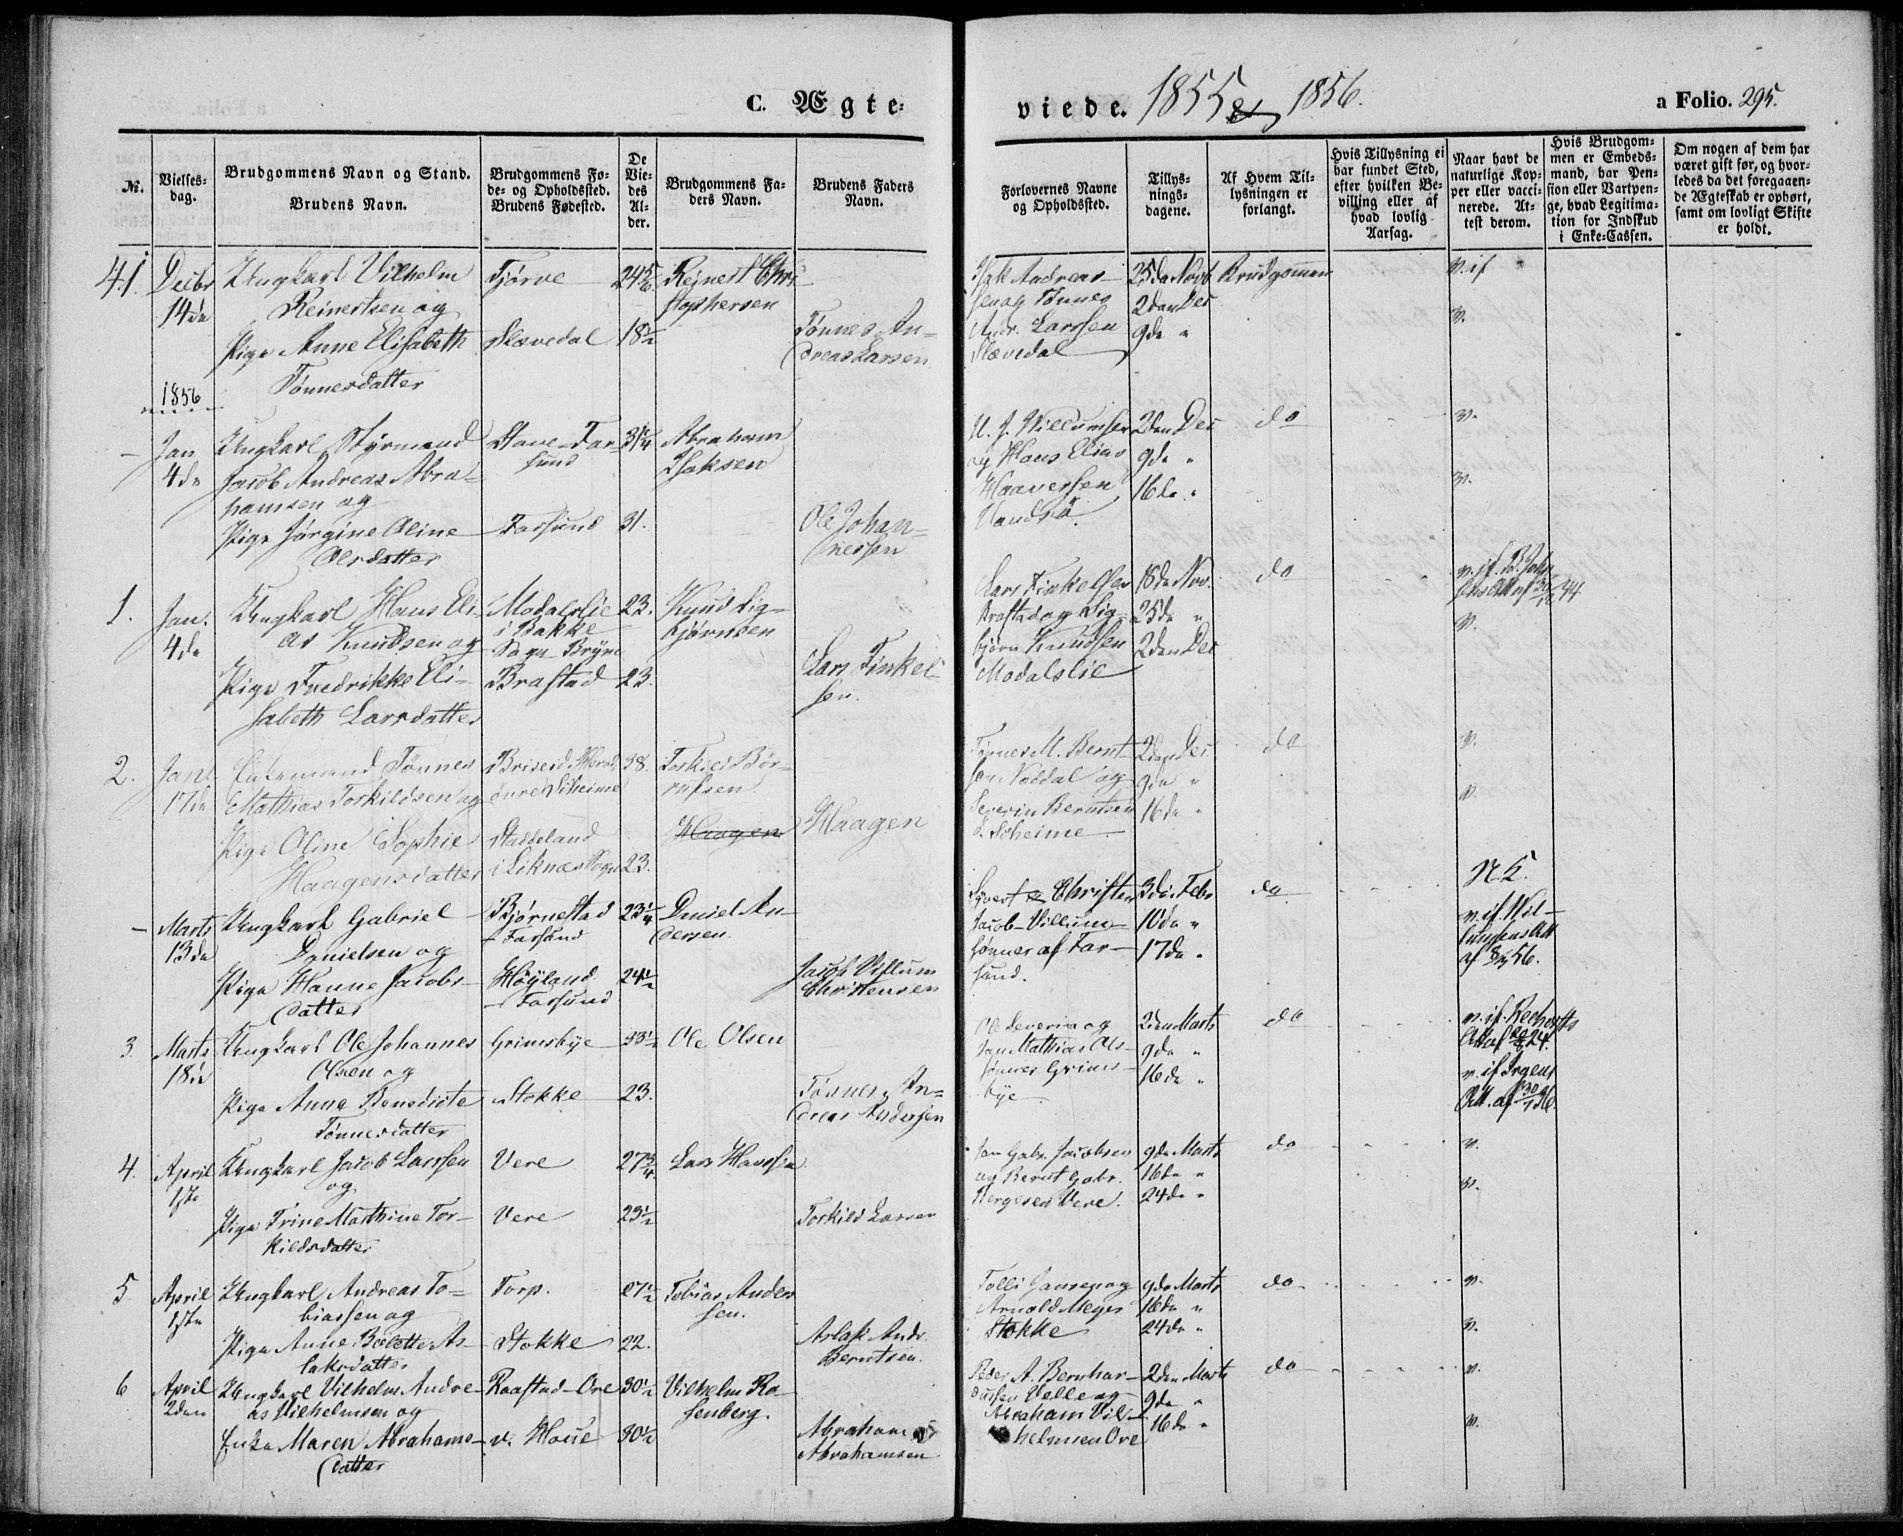 C. Ægte-
viede. 1855 & 1856.
a Folio. 295.
No.
Vielses-
dag.
Brudgommens Navn og Stand.
Brudens Navn.
Brudgommens Fø-
de- og Opholdssted.
Brudens Fødested.
De
Vie-
des
Al-
der.
Brudgommens Fa-
ders Navn.
Brudens Faders
Navn.
Forlovernes Navne
og Opholdssted.
Tillys-
nings-
dagene.
Af Hvem Til-
lysningen er
forlangt.
Hvis Tillysning ei
har fundet Sted,
efter hvilken Be-
villing eller af
hvad lovlig
Aarsag.
Naar havt de
naturlige Kop-
per eller vacci-
nerede. At-
test derom.
Hvis Brudgom-
men er Embeds-
mand, har Pen-
sion eller Vartpen-
ge, hvad Legitima-
tion for Indskud
i Enke-Cassen.
Om nogen af dem har
været gift før, og hvor-
ledes da det foregaaen-
de Ægteskab er ophørt,
samt om lovligt Skifte
er holdt.
41.
Decbr
14de
Ungkarl Vilhelm
Reinertsen og
Pige Anne Elisabeth
Tønnesdatter
Tjørve
Slævedal
24 5/6
18 1/2
Reinert Chri-
stophersen
Tønnes An-
dreas Larsen
Isak Andreas-
sen og Tønnes
Andr. Larssen
Slævedal
25de Novb
2den Dec
9de "
Brudgommen
v. if
v.
1856
–
Jan
4de
Ungkarl Styrmand
Jacob Andreas Abra-
hamsen og
Pige Jørgine Oline
Olsdatter
Stave – Far-
sund
Farsund
31 1/4
31.
Abraham
Isaksen
Ole Johan-
nessen
U. J. Villumsen
og Hans Elias
Haaversen
2den Dec
9de "
16de "
do
v.
v.
1.
Jan.
4de
Ungkarl Hans Eli-
as Knudsen og
Pige Fredrikke Eli-
sabeth Larsdatter
Modalslie
i Bakke
Sogn – Bryne
Brastad
23.
23.
Knud Sig-
bjørnsen
Lars Finkel-
sen.
Lars Finkelsen
Brastad og Sig-
bjørn Knudsen
Modalslie
18de Nov.
25de "
2den Dec
do
v.
2.
Jan.
17de
Enkemand Tønnes
Mathias Torkildsen og
Pige Oline Sophie
Haagensdatter
Briseid
Staddeland
i Liknæs Sogn
38.
23.
Torkild Bør-
rufsen.
Haagen
Haagen
Tønnes M. Bernt-
sen Noddal og
Severin Berntsen
S. Soheime
2den Dec
9de "
16de "
do
v.
v.
–
Marts
13de
Ungkarl Gabriel
Danielsen og
Pige Hanne Jacobs-
datter
Bjørnestad
– Farsund
Høyland
– Farsund
23 1/4
24 1/2
Daniel An-
dersen.
Jacob Villum
Christensen
Jacob Villum-
sønner af Far-
sund.
3die Febr
10de "
17de "
do
3
Marts
18de
Ungkarl Ole Johannes
Olsen og
Pige Anne Benedicte
Tønnesdatter
Grimsbye
Stokke
33 1/2
23.
Ole Olsen
Tønnes An-
dreas Andersen
Ole Severin og
Jan Mathias Ols-
sønner Grims-
bye.
2den Marts
9de "
16de "
do
4.
April
1ste
Ungkarl Jacob Larssen
og
Pige Trine Marthine Tor-
kildsdatter
Vere
Vere
27 3/4
23 1/2
Lars Hanssen
Torkild Larsen
Jan Gabr. Jacobsen
og Bernt Gabr.
Børgesen Vere.
9de Marts
16de "
24de "
do
v.
v.
5
April
1ste
Ungkarl Andreas To-
biassen og
Pige Anne Bolette As-
laksdatter
Torp.
Stokke
27 1/2
22.
Tobias Anders-
sen.
Aslak Andr.
Berntsen.
Tolli Jansen og
Arnold Meyer
Stokke
9de Marts
16de "
24de "
do
v.
v.
6
April
2den
Ungkarl Vilhelm Andre-
as Vilhelmsen og
Enke Maren Abrahams-
datter
Raastad – Ore
v. Houe
30 1/2
30 1/2
Vilhelm Ro-
senberg.
Abraham
Abrahamsen
Peder A. Bernhar-
dussen Velle og
Abraham Vil-
helmsen Ore
2den Marts
9de "
16de "
do
v.
v.